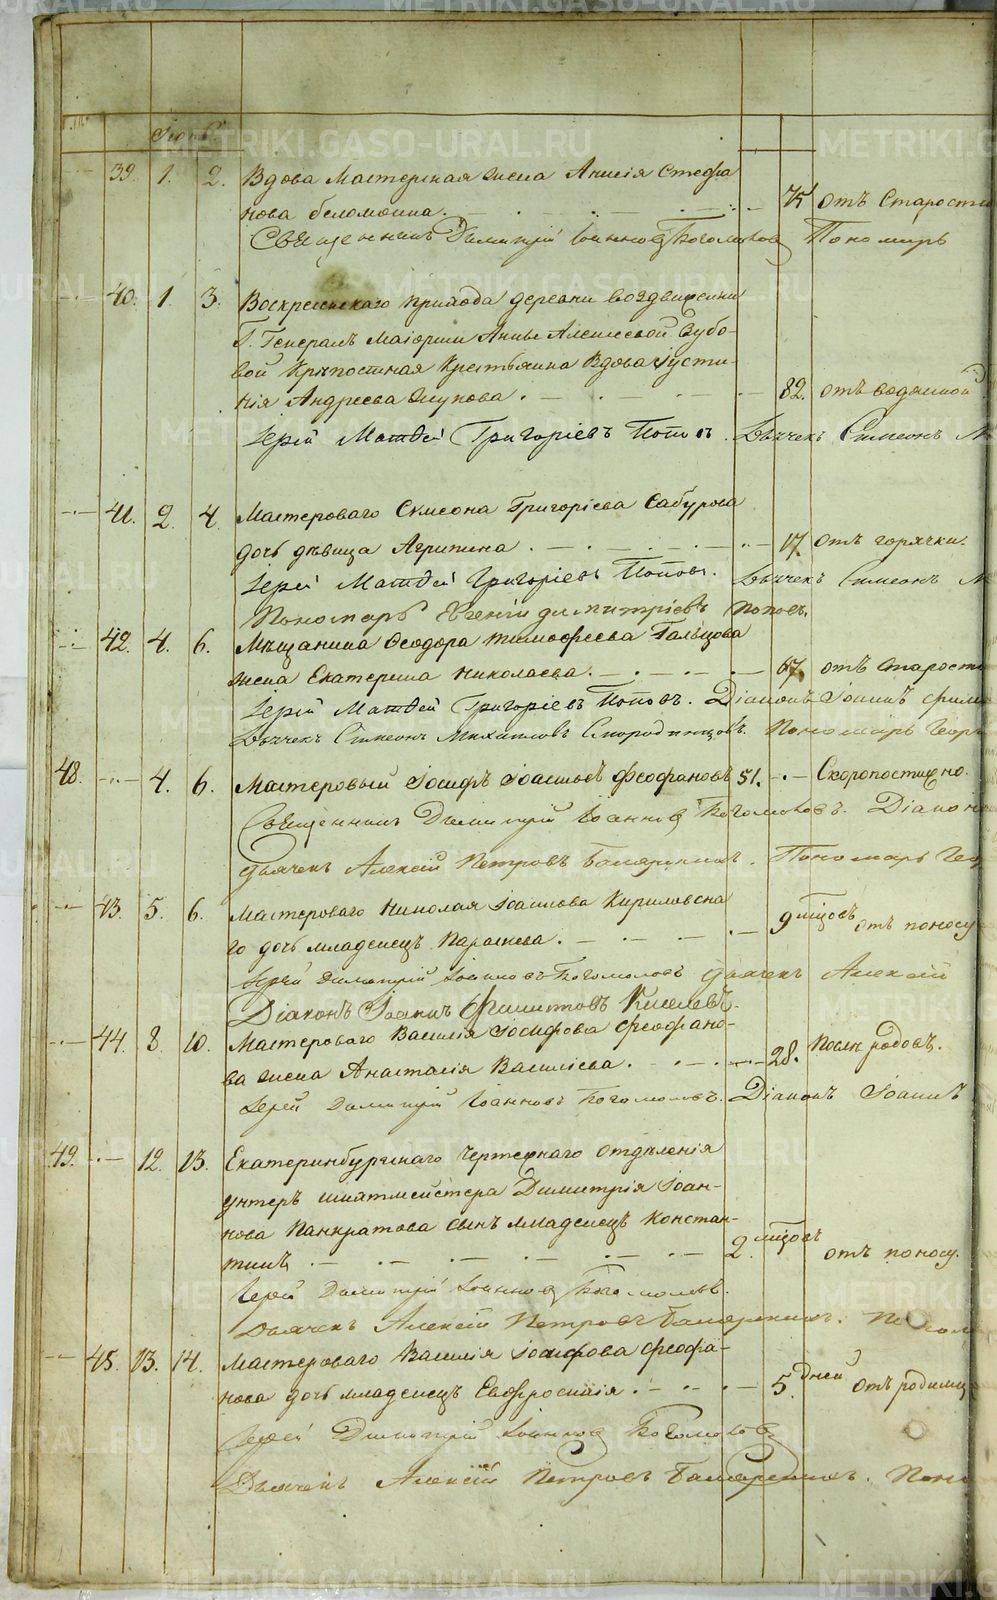 METRIKI.GASO-URAL.RU
39. 1. 2. Вдова Мастерская жена Анисія Стефа
нова беломоина. 75 отъ Старости
Священникъ Димитрій Іоанновъ Богомоловъ Пономарь
40. 1. 3. Воскресенскаго прихода деревни Воздвиженки
Г. Генералъ Маіорши Анны Алексеевой Зубо-
вой Крѣпостная Крестьянка Вдова Іусти-
нія Андреева 82. отъ водяной
Іерей Матѳей Григоріевъ Поповъ. Дьячекъ Симеонъ
41. 2. 4. Мастероваго Симеона Григоріева Сабурова
дочь дѣвица Агрипина. 17. отъ горячки.
Іерей Матѳей Григоріевъ Поповъ. Дьячекъ Симеонъ
Пономарь Евгеній Димитріевъ Поповъ.
42. 4. 6. Мѣщанина Ѳеодора Тимофеева Гальцова
жена Екатерина Николаева. 67. отъ Старости
Іерей Матѳей Григоріевъ Поповъ. Діаконъ Іоаннъ Филип
Дьячекъ Симеонъ Михаиловъ Смородинцовъ. Пономарь Геор
48. 4. 6. Мастеровый Іосифъ Іоанновъ Феофановъ 51. Скоропостижно.
Священникъ Димитрій Іоанновъ Богомоловъ. Діаконъ
Дьячекъ Алексій Петровъ Пономарь Геор
43. 5. 6. Мастероваго Николая Іоаннова Кириловска
го дочь младенецъ Параскева. 9 мѣсцовъ отъ поносу
Іерей Димитрій Іоанновъ Богомоловъ Дьячекъ Алексій
Діаконъ Іоаннъ Филиптовъ Киселевъ.
44. 8. 10. Мастероваго Василія Іосифова Феофано-
ва жена Анастасія Василіева. 28. послѣ родовъ.
Іерей Димитрій Іоанновъ Богомоловъ. Діаконъ Іоаннъ
49. 12. 13. Екатеринбургскаго Чертежнаго отдѣленія
унтеръ шихтмейстера Димитрія Іоан-
нова Панкратова сынъ младенецъ Констан-
тинъ 2. мѣсцовъ отъ поносу.
Іерей Димитрій Іоанновъ Богомоловъ.
Дьячекъ Алексій Петровъ
45. 13. 14. Мастероваго Василія Іосифова Феофа-
нова дочь младенецъ Евфросинія. 5. дней отъ родимц
Іерей Димитрій Іоанновъ Богомоловъ
Дьячекъ Алексій Петровъ Поно